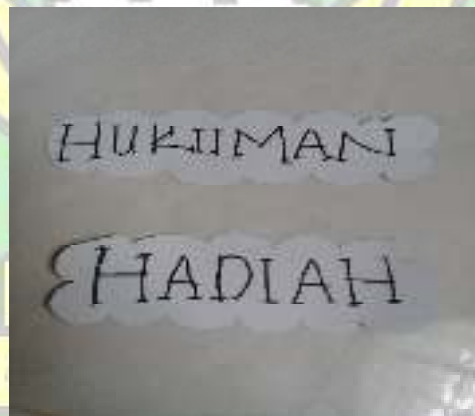 HUKUMAN
HADIAH